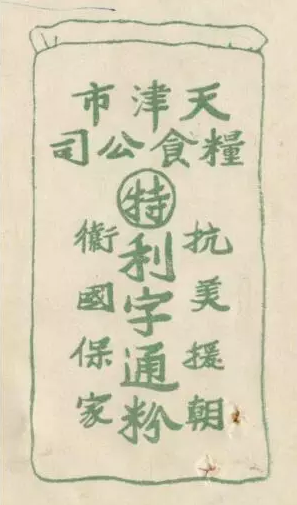 天津市
糧食公司
特
利字通粉
抗美援朝
衞國保家